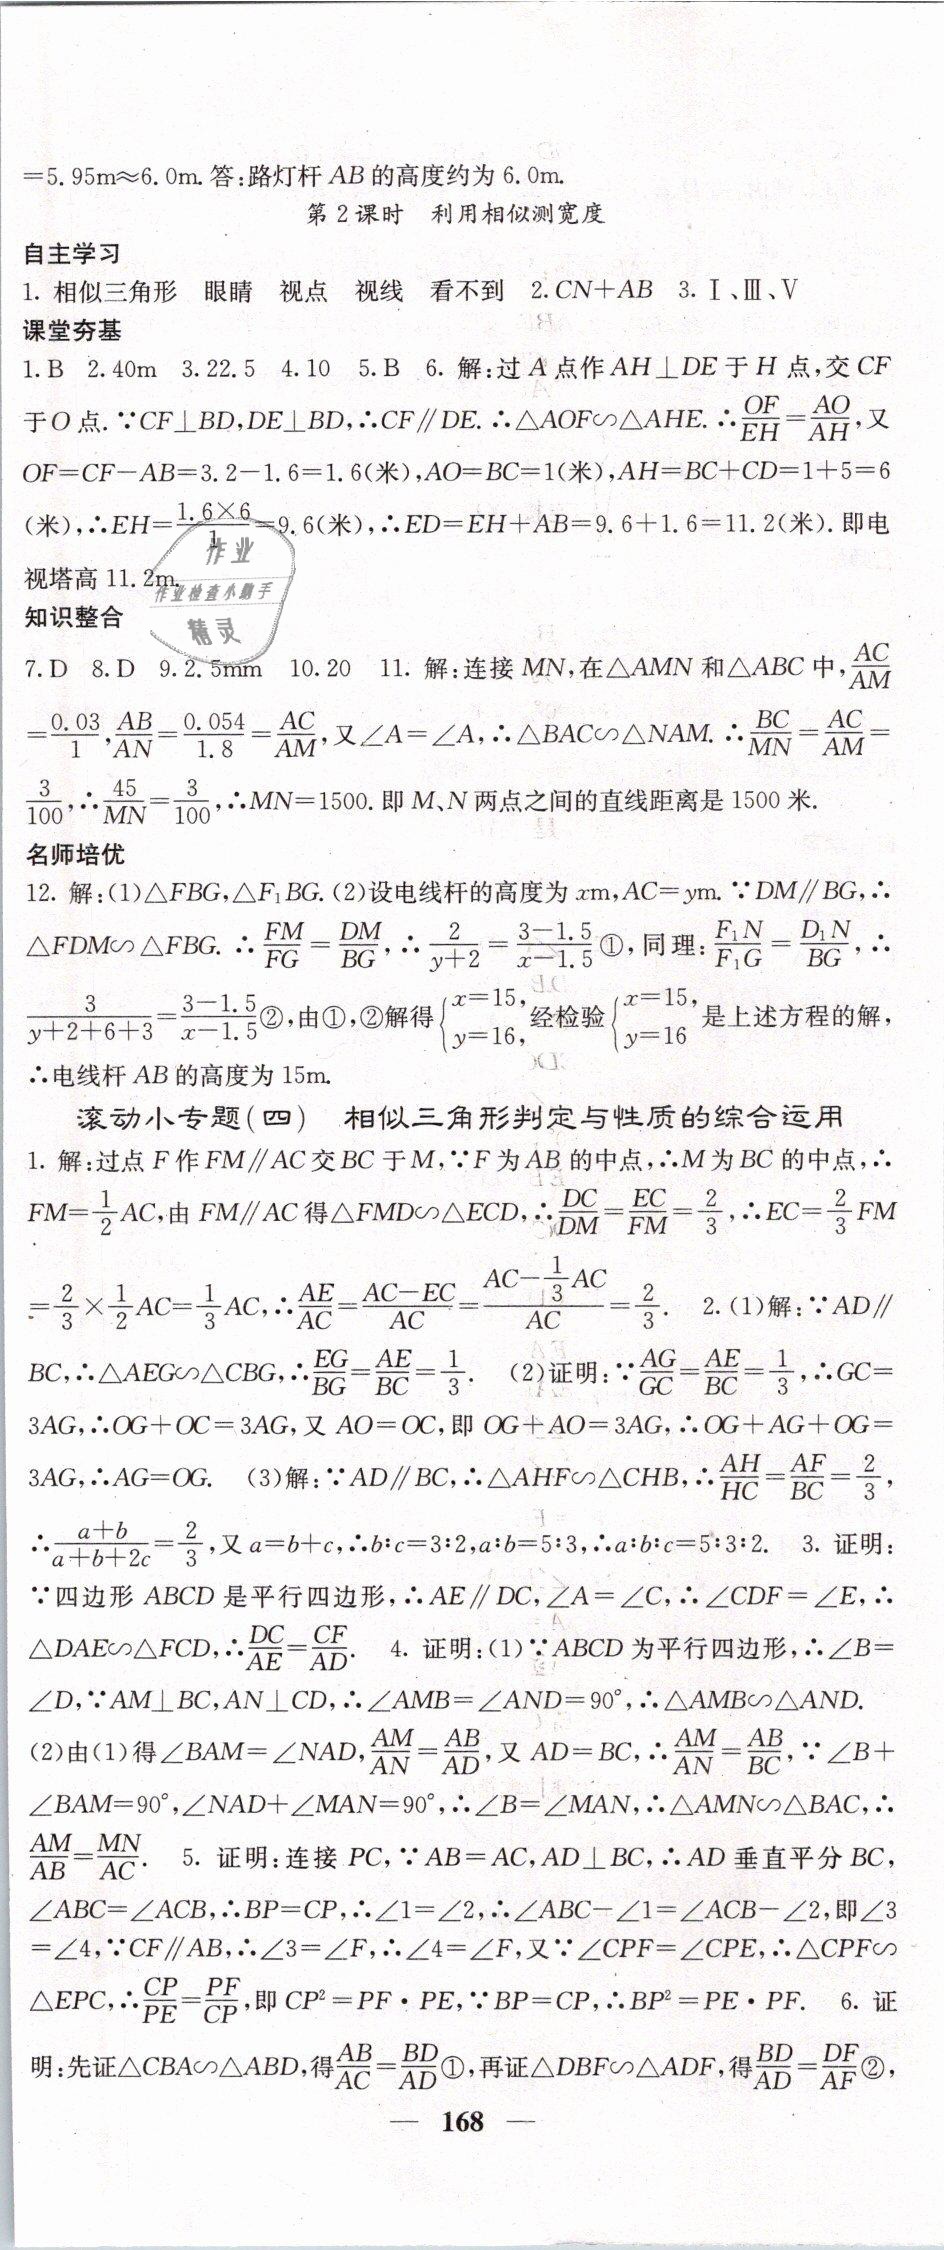 =5.95m≈6.0m. 答:路灯杆 AB 的高度约为 6.0m.
第2课时 利用相似测宽度
自主学习
1. 相似三角形 眼睛 视点 视线 看不到 2. CN+AB 3. Ⅰ、Ⅲ、Ⅴ
课堂夯基
1. B 2. 40m 3. 22.5 4. 10 5. B 6. 解:过 A 点作 AH⊥DE 于 H 点,交 CF
于O点. ∵CF⊥BD,DE⊥BD,∴CF∥DE. ∴△AOF∽△AHE. ∴OF/EH=AO/AH,又
OF=CF-AB=3.2-1.6=1.6(米),AO=BC=1(米),AH=BC+CD=1+5=6
(米),∴EH=1.6×6/1=9.6(米),∴ED=EH+AB=9.6+1.6=11.2(米). 即电
视塔高 11.2m.
作业
作业检查小助手
精灵
知识整合
7. D 8. D 9. 2.5mm 10. 20 11. 解:连接 MN,在△AMN 和△ABC 中,AC/AM
=0.03/1,AB/AN=0.054/1.8=AC/AM,又∠A=∠A,∴△BAC∽△NAM. ∴BC/MN=AC/AM=
3/100,∴45/MN=3/100,∴MN=1500. 即 M、N 两点之间的直线距离是 1500 米.
名师培优
12. 解:(1)△FBG,△F₁BG. (2)设电线杆的高度为 xm,AC=ym. ∵DM∥BG,∴
△FDM∽△FBG. ∴FM/FG=DM/BG,∴2/(y+2)=(3-1.5)/(x-1.5)①,同理:F₁N/F₁G=D₁N/BG,∴
3/(y+2+6+3)=(3-1.5)/(x-1.5)②,由①,②解得{x=15, y=16,经检验{x=15, y=16 是上述方程的解,
∴电线杆 AB 的高度为 15m.
滚动小专题(四) 相似三角形判定与性质的综合运用
1. 解:过点 F 作 FM∥AC 交 BC 于 M,∵F 为 AB 的中点,∴M 为 BC 的中点,∴
FM=1/2 AC,由 FM∥AC 得△FMD∽△ECD,∴DC/DM=EC/FM=2/3,∴EC=2/3 FM
=2/3×1/2 AC=1/3 AC,∴AE/AC=(AC-EC)/AC=(AC-1/3 AC)/AC=2/3. 2. (1)解:∵AD∥
BC,∴△AEG∽△CBG,∴EG/BG=AE/BC=1/3. (2)证明:∵AG/GC=AE/BC=1/3,∴GC=
3AG,∴OG+OC=3AG,又 AO=OC,即 OG+AO=3AG,∴OG+AG+OG=
3AG,∴AG=OG. (3)解:∵AD∥BC,∴△AHF∽△CHB,∴AH/HC=AF/BC=2/3,
∴(a+b)/(a+b+2c)=2/3,又 a=b+c,∴b∶c=3∶2,a∶b=5∶3,∴a∶b∶c=5∶3∶2. 3. 证明:
∵四边形 ABCD 是平行四边形,∴AE∥DC,∠A=∠C,∴∠CDF=∠E,∴
△DAE∽△FCD,∴DC/AE=CF/AD. 4. 证明:(1)∵ABCD 为平行四边形,∴∠B=
∠D,∵AM⊥BC,AN⊥CD,∴∠AMB=∠AND=90°,∴△AMB∽△AND.
(2)由(1)得∠BAM=∠NAD,AM/AN=AB/AD,又 AD=BC,∴AM/AN=AB/BC,∵∠B+
∠BAM=90°,∠NAD+∠MAN=90°,∴∠B=∠MAN,∴△AMN∽△BAC,∴
AM/AB=MN/AC. 5. 证明:连接 PC,∵AB=AC,AD⊥BC,∴AD 垂直平分 BC,
∠ABC=∠ACB,∴BP=CP,∴∠1=∠2,∴∠ABC-∠1=∠ACB-∠2,即∠3
=∠4,∵CF∥AB,∴∠3=∠F,∴∠4=∠F,又∵∠CPF=∠CPE,∴△CPF∽
△EPC,∴CP/PE=PF/CP,即 CP²=PF·PE,∵BP=CP,∴BP²=PE·PF. 6. 证
明:先证△CBA∽△ABD,得AB/AC=BD/AD①,再证△DBF∽△ADF,得BD/AD=DF/AF②,
— 168 —